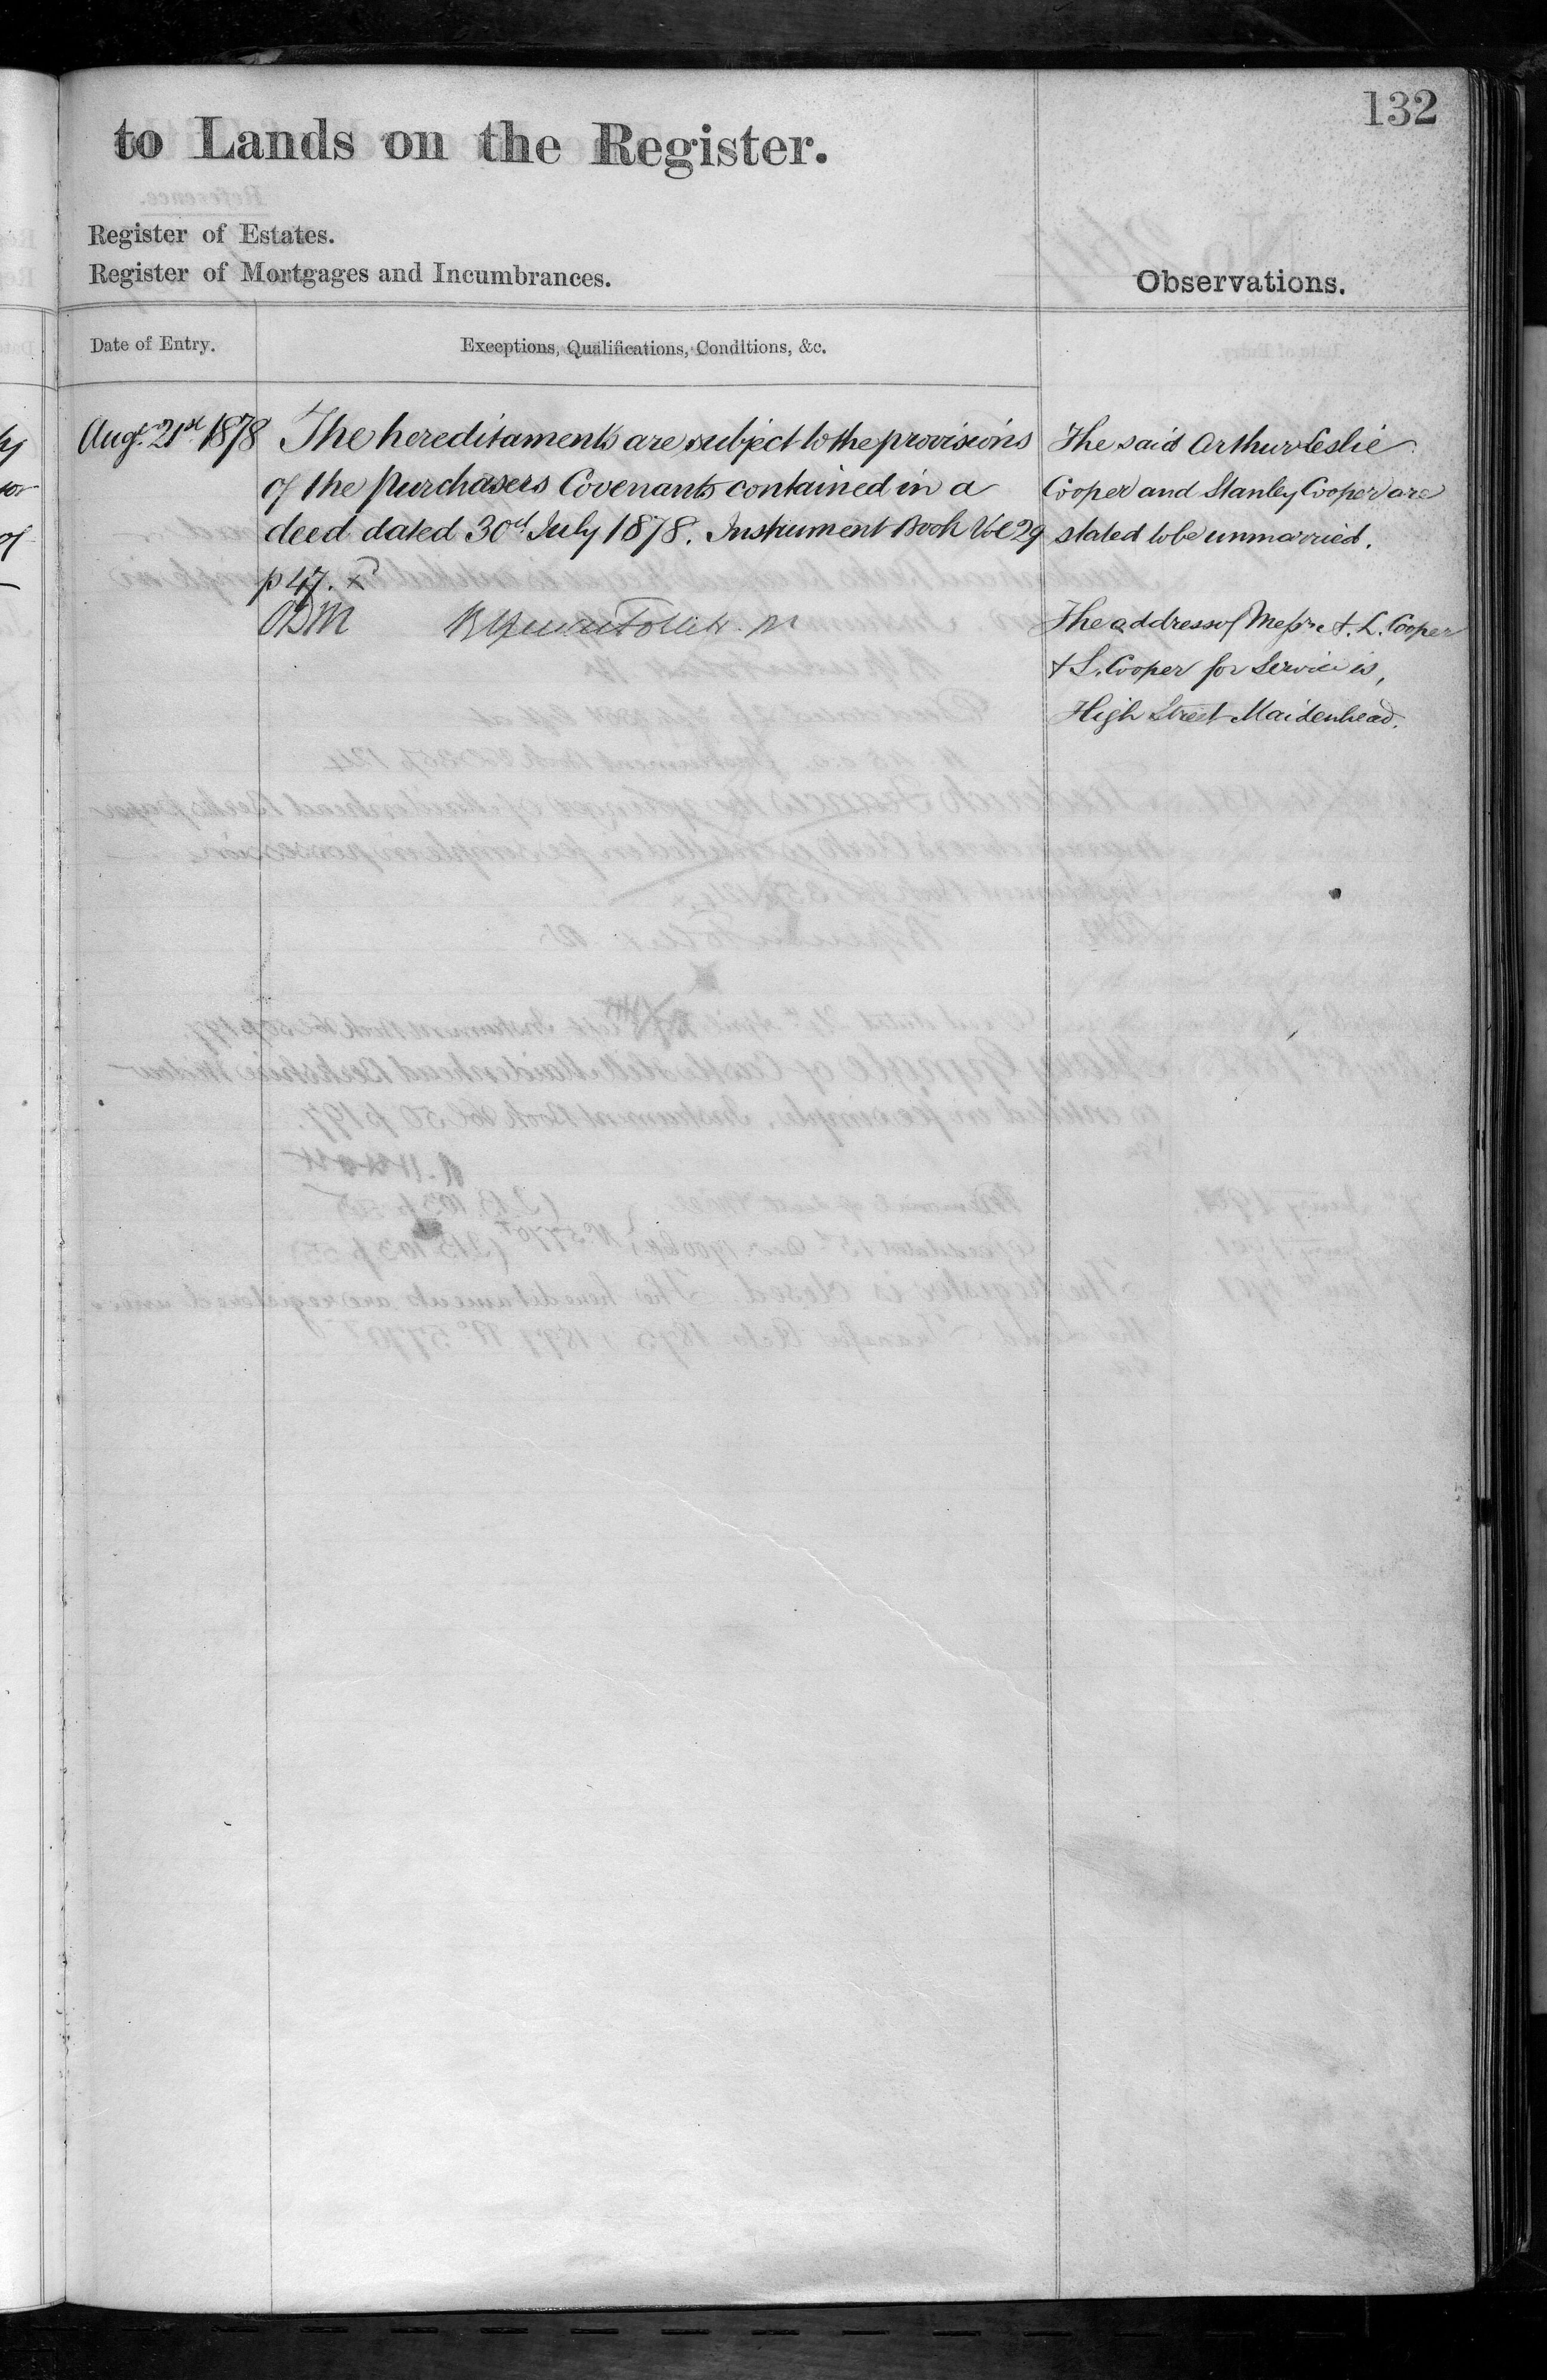 132
to Lands on the Register.
Register of Estates.
Register of Mortgages and Incumbrances.
Observations.
Date of Entry.
Exceptions, Qualifications, Conditions, &c.
Augt. 21st 1878
The hereditaments are subject to the provisions
of the purchasers Covenants contained in a
deed dated 30th July 1878. Instrument Book Vol 29
p 47.
The said Arthur Leslie
Cooper and Stanley Cooper are
stated to be unmarried.
The address of Messrs A. L. Cooper
& S. Cooper for Service is,
High Street Maidenhead.